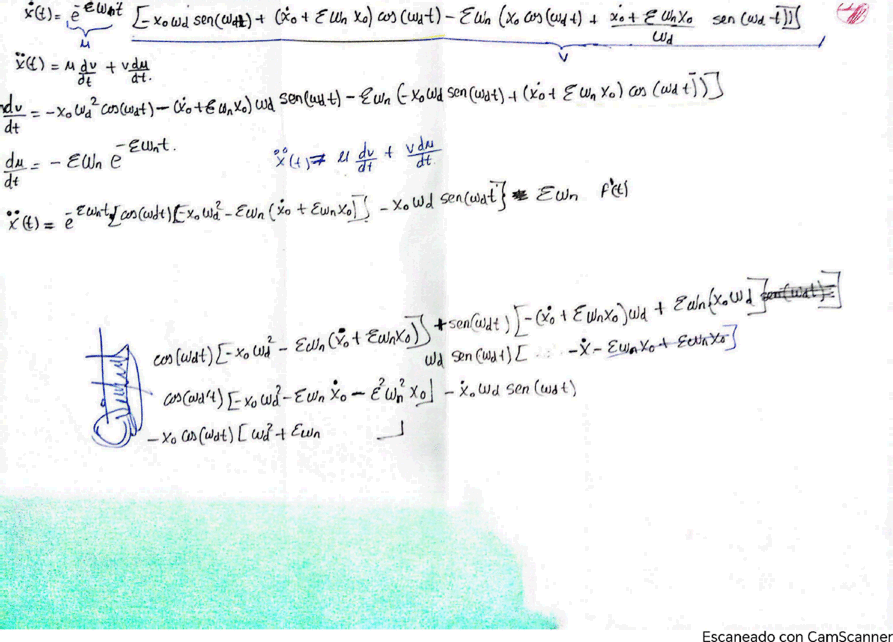 ẋ(t) = e^{-εωnt} [-x₀ωd sen(ωdt) + (ẋ₀ + εωn x₀) cos(ωdt) - εωn (x₀ cos(ωdt) + (ẋ₀ + εωnx₀)/ωd sen(ωdt))]
μ v
ẍ(t) = μ dv/dt + v dμ/dt.
dv/dt = -x₀ωd² cos(ωdt) - (ẋ₀ + εωnx₀)ωd sen(ωdt) - εωn (-x₀ωd sen(ωdt) + (ẋ₀ + εωn x₀) cos(ωdt))]
dμ/dt = -εωn e^{-εωnt}. ẍ(t) = μ dv/dt + v dμ/dt
ẍ(t) = e^{-εωnt} {cos(ωdt)[-x₀ωd² - εωn(ẋ₀ + εωnx₀)] - ẋ₀ωd sen(ωdt)} εωn
cos(ωdt)[-x₀ωd² - εωn(ẋ₀ + εωnx₀)] + sen(ωdt)[-(ẋ₀ + εωnx₀)ωd + εωn(x₀ωd]
ωd sen(ωdt)[ -ẋ - εωnx₀ + εωnx₀]
cos(ωdt)[-x₀ωd² - εωnẋ₀ - ε²ωn²x₀] - ẋ₀ωd sen(ωdt)
-x₀ cos(ωdt)[ωd² + εωn ]
Escaneado con CamScanner